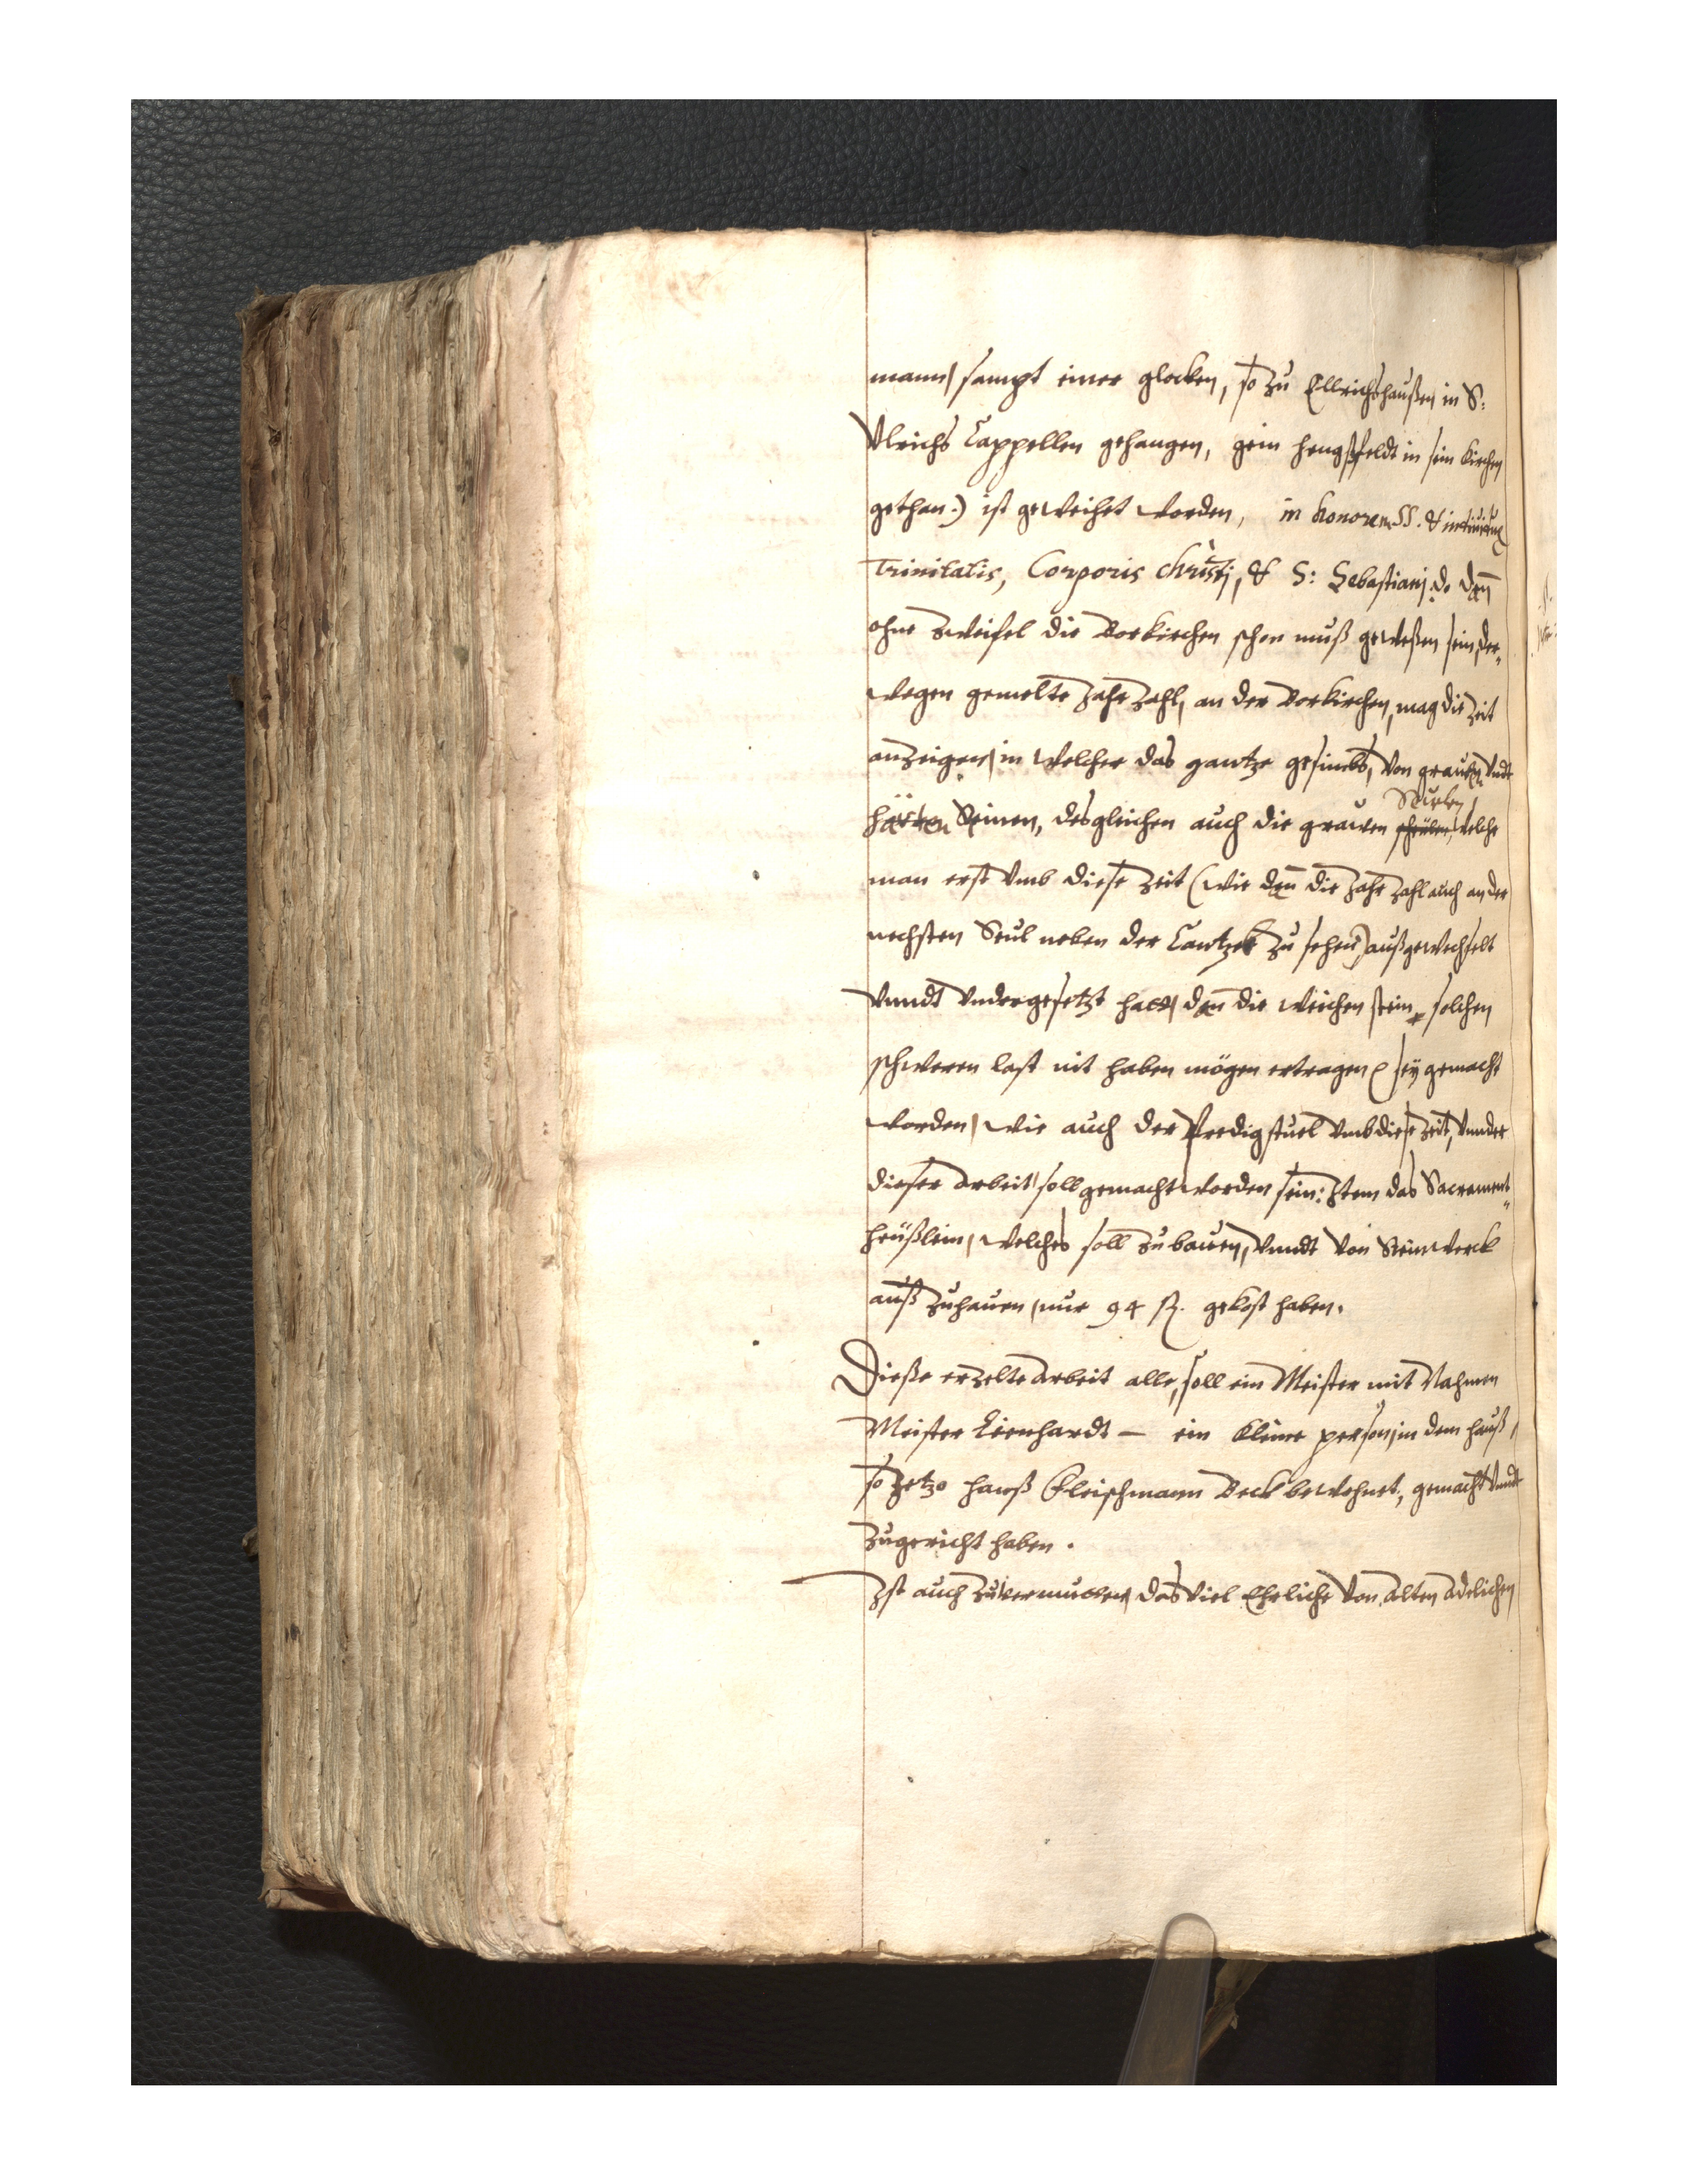 mann, sampt einer glocken, so zu Ellrichshaußen in S:
Vlrichs Cappellen gehangen, gein hengstfeldt in sein kirchen
gethan.) ist geweihet worden, in honorem SS. & individuæ
Trinitatis, Corporis Christi, & S: Sebastiani. Do dan̄
ohne zweifel die Vorkirchen schon muß geweßen sein, der„
wegen gemelte Jahrzahl, an der Vorkirchen, mag die Zeit
anzeigen, in welcher das gantze gesimbs, von grawen vndt
härten Steinen, desgleichen auch die grawen Seulen, welche
man erst vmb diese Zeit (wie dan̄ die Jahrzahl auch an der
nechsten Seul neben der Cantzel zu sehen) außgewechselt
vnndt vndergesetzt hatt, dan̄ die weichen stein solchen
schweren last nit haben mögen ertragen) sey gemacht
worden, wie auch der Predigstuel vmb diese zeit, vnnder
dieser Arbeit, soll gemacht worden sein: Item das Sacrament„
heüßlein, welches soll zu bawen, vnndt von Steinwerck
auß zuhauen, nur 94 fl. gekost haben.
Dieße erzelte Arbeit alle, soll ein Meister mit Nahmen
Meister Lienhardt – ein kleine person, in dem hauß,
so Jetzo hanß Fleischmann Beck bewohnet, gemacht vnndt
zugericht haben.
Ist auch zuvermutten, das viel Ehrliche von Alten Adelichen